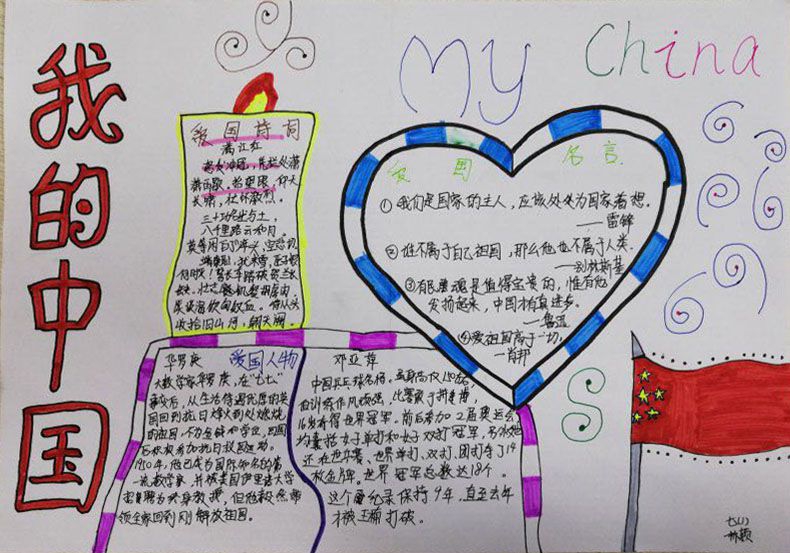 我的中国
My China
爱国诗词
满江红
怒发冲冠,凭栏处潇
抬望眼,仰天
长啸,壮怀激烈。
三十功名尘与土,
八千里路云和月。
莫等闲白了少年头,空悲切
收拾旧山河,朝天阙。
爱国名言
①我们是国家的主人,应该处处为国家着想。
——雷锋
②谁不属于自己祖国,那么他也不属于人类。
——别林斯基
③有民魂是值得宝贵的,惟有他
发扬起来,中国才有真进步。
——鲁迅
④爱祖国高于一切。
——肖邦
爱国人物
华罗庚
大数学家华罗庚,在"七七"
事变后,从生活待遇优厚的英
国回到抗日烽火到处燃烧
的祖国,
后积极参加抗日救国运动。
1950年,他已成为国际知名的第一
流数学家,并被美国伊里诺大学
聘为终身教授,但他毅然带
领全家回到刚解放祖国。
邓亚萍
中国乒乓球名将。虽身高仅150cm,
但训练作风顽强,比赛敢于拼搏,
16岁夺得世界冠军。前后参加2届奥运会
均囊括女子单打和女子双打冠军,
还在世乒赛、世界单打、双打、团打夺了14
枚金牌。世界冠军总数达18个。
这个雷纪录保持9年,直至去年
才被王楠打破。
七(1)
林颖